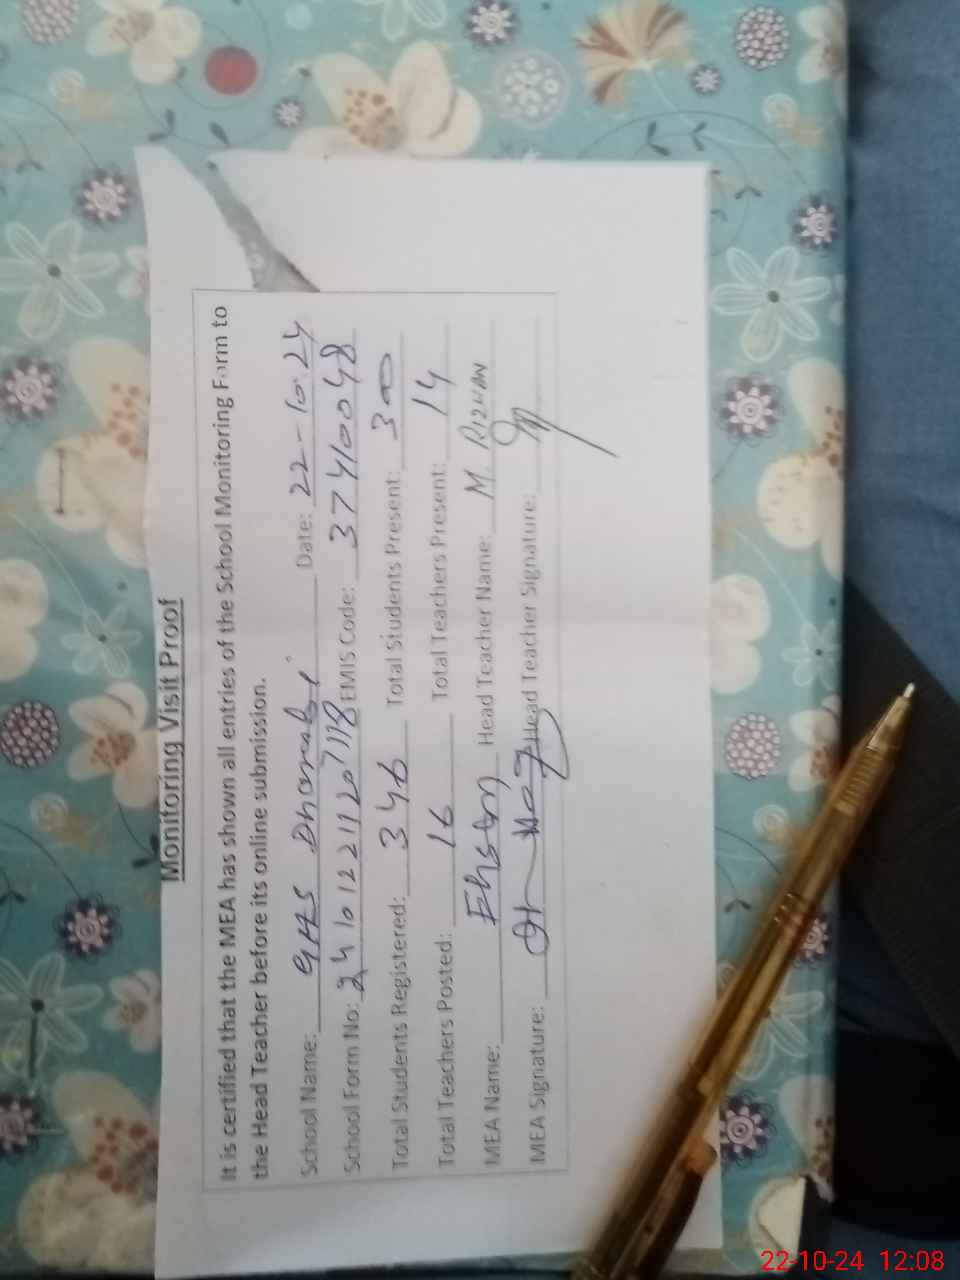 Monitoring Visit Proof
It is certified that the MEA has shown all entries of the School Monitoring Form to
the Head Teacher before its online submission.
School Name: GHS Dhamali Date: 22-10-24
School Form No: 241012211207118 EMIS Code: 37410048
Total Students Registered: 346 Total Students Present: 300
Total Teachers Posted: 16 Total Teachers Present: 14
MEA Name: Ehsan Head Teacher Name: M. RIZWAN
MEA Signature: Head Teacher Signature:
22-10-24 12:08